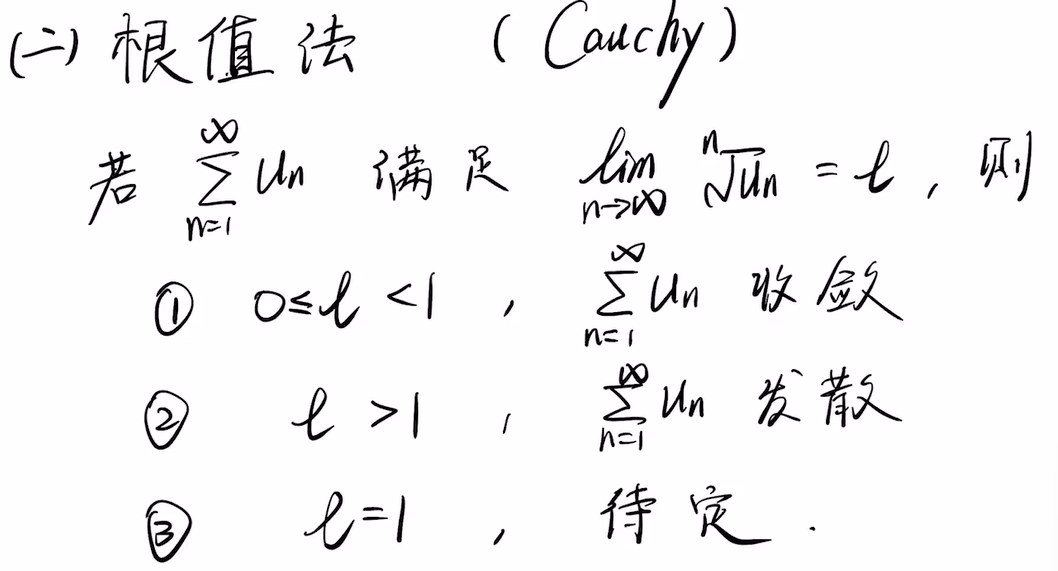 (二) 根值法 (Cauchy)
若 $\sum_{n=1}^{\infty} u_n$ 满足 $\lim_{n \to \infty} \sqrt[n]{u_n} = l$, 则
① $0 \le l < 1$, $\sum_{n=1}^{\infty} u_n$ 收敛
② $l > 1$, $\sum_{n=1}^{\infty} u_n$ 发散
③ $l = 1$, 待定.